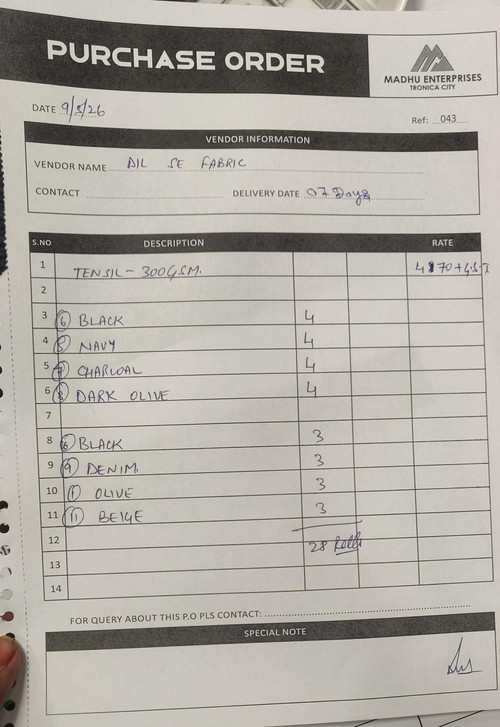 PURCHASE ORDER
MADHU ENTERPRISES
TRONICA CITY
DATE 9/5/26
Ref: 043
VENDOR INFORMATION
VENDOR NAME DIL SE FABRIC
CONTACT DELIVERY DATE 07 Days
S.NO DESCRIPTION RATE
1 TENSIL - 300GSM. +G.S.T
2
3 (6) BLACK 4
4 NAVY 4
5 CHARCOAL 4
6 DARK OLIVE 4
7
8 (6) BLACK 3
9 (9) DENIM. 3
10 (1) OLIVE 3
11 (11) BEIGE 3
12 28 Rolls
13
14
FOR QUERY ABOUT THIS P.O PLS CONTACT:
SPECIAL NOTE